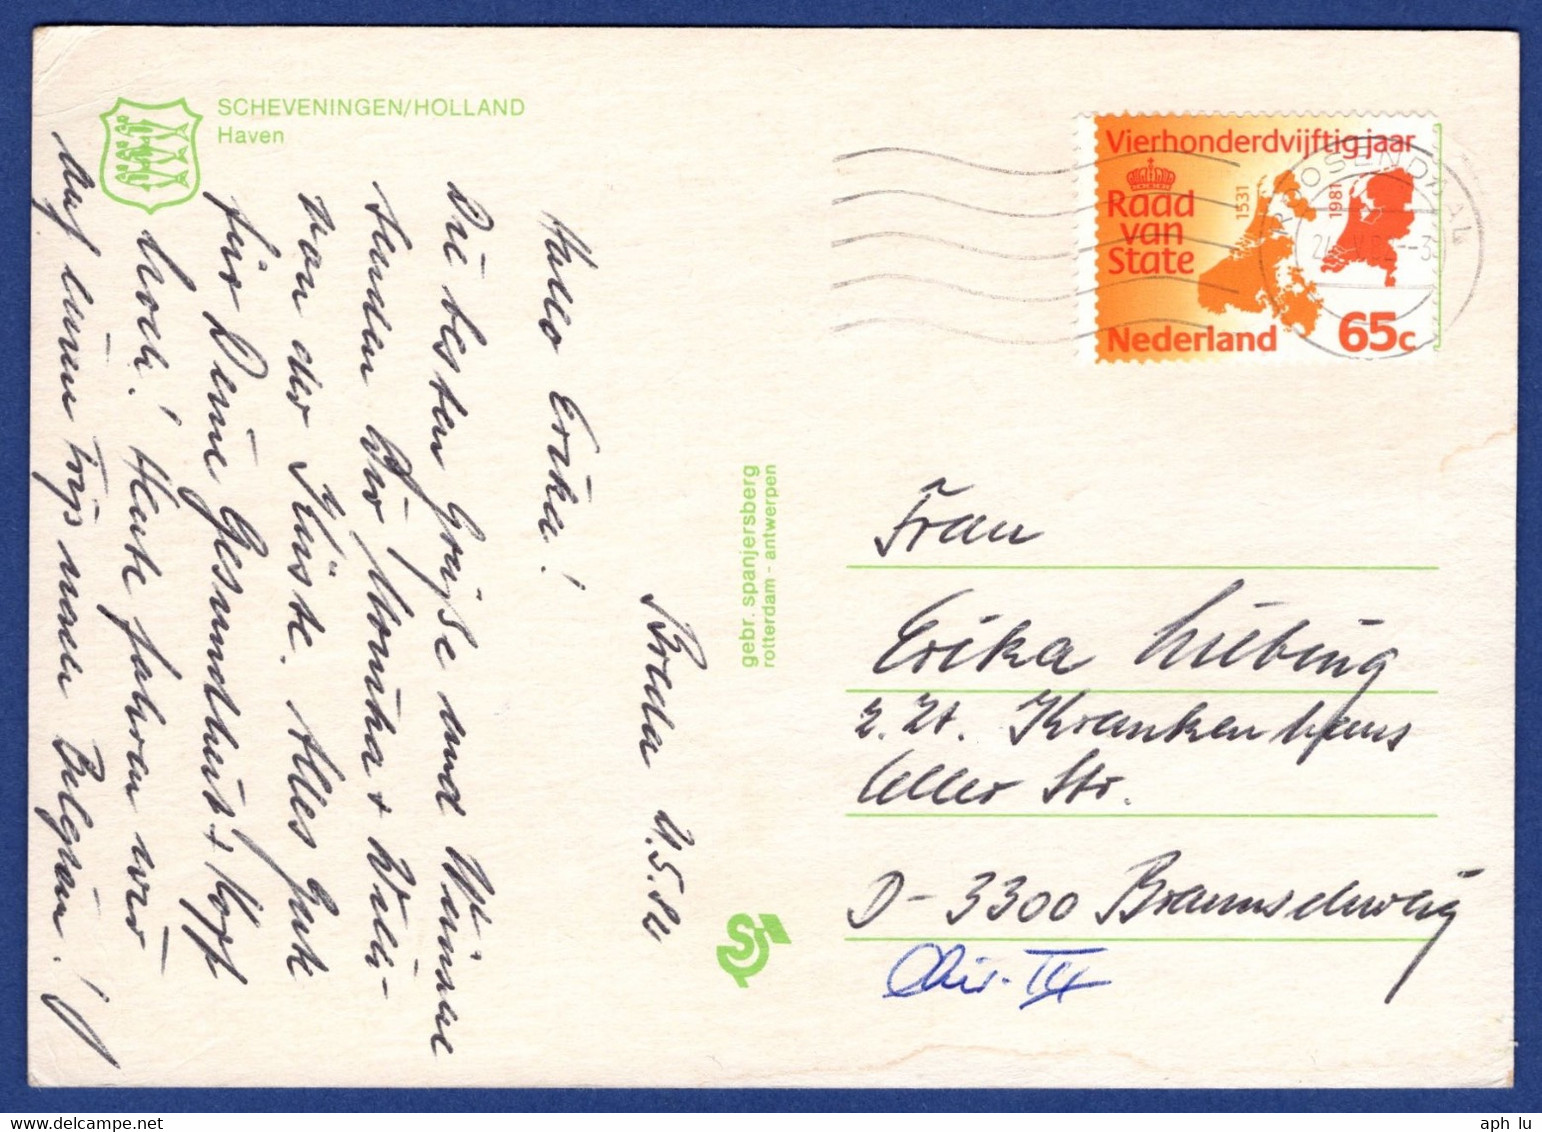 SCHEVENINGEN/HOLLAND
Haven
Breda
Hallo Erika!
Die besten Grüße und Wünsche
senden Dir Monika + Willi
von der Küste. Alles Gute
für Deine Gesundheit +
Heute fahren wir
auf einen Trip nach Belgien!
gebr. spanjersberg
rotterdam - antwerpen
Vierhonderdvijftig jaar
Raad
van
State
1531
1981
Nederland 65c
ROOSENDAAL
Frau
Erika Liebing
z. Zt. Krankenhaus
Celler Str.
D-3300 Braunschweig
Chir. IV
aph lu